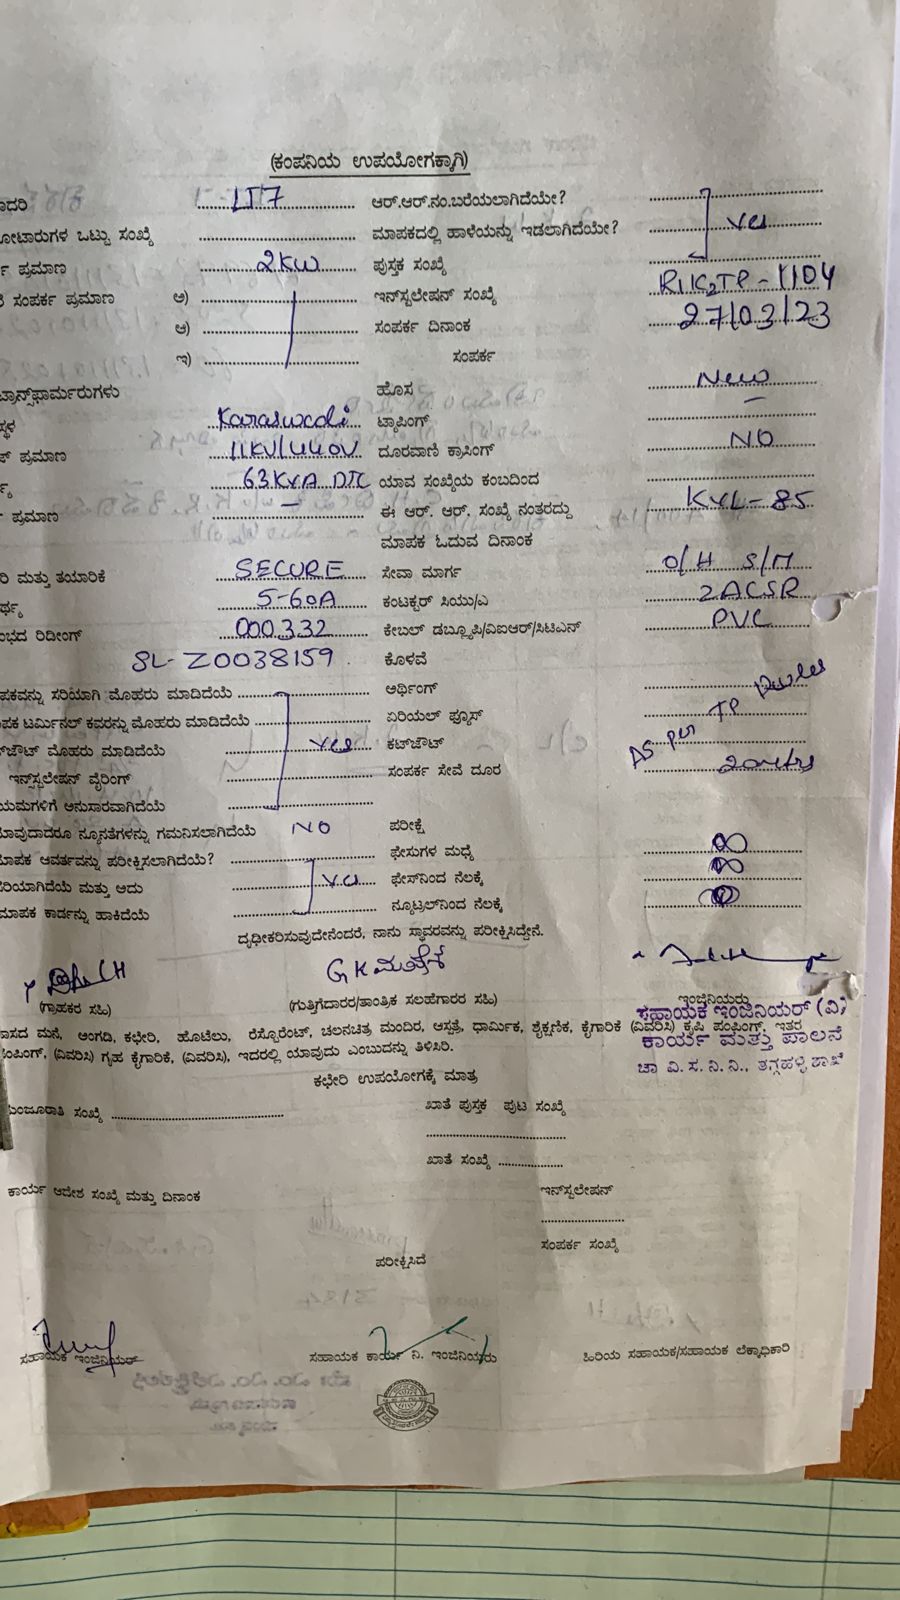 (ಕಂಪನಿಯ ಉಪಯೋಗಕ್ಕಾಗಿ)
LT7 ಆರ್.ಆರ್.ನಂ.ಬರೆಯಲಾಗಿದೆಯೇ?
ಒಟ್ಟು ಸಂಖ್ಯೆ ಮಾಪಕದಲ್ಲಿ ಹಾಳೆಯನ್ನು ಇಡಲಾಗಿದೆಯೇ? yes
ಪ್ರಮಾಣ 2KW ಪುಸ್ತಕ ಸಂಖ್ಯೆ
ಸಂಪರ್ಕ ಪ್ರಮಾಣ ಅ) ಇನ್‌ಸ್ಟಲೇಷನ್ ಸಂಖ್ಯೆ
ಆ) ಸಂಪರ್ಕ ದಿನಾಂಕ 27/03/23
ಇ) ಸಂಪರ್ಕ
ಟ್ರಾನ್ಸ್‌ಫಾರ್ಮರುಗಳು ಹೊಸ New
Karaswadi ಟ್ಯಾಪಿಂಗ್ –
ಪ್ರಮಾಣ 11KV/440V ದೂರವಾಣಿ ಕ್ರಾಸಿಂಗ್ NO
63KVA DTC ಯಾವ ಸಂಖ್ಯೆಯ ಕಂಬದಿಂದ
ಪ್ರಮಾಣ – ಈ ಆರ್. ಆರ್. ಸಂಖ್ಯೆ ನಂತರದ್ದು KYL-85
ಮಾಪಕ ಓದುವ ದಿನಾಂಕ
ಮತ್ತು ತಯಾರಿಕೆ SECURE ಸೇವಾ ಮಾರ್ಗ O/H S/M
5-60A ಕಂಟಕ್ಟರ್ ಸಿಯು/ಎ 2ACSR
ರಿಡೀಂಗ್ 000332 ಕೇಬಲ್ ಡಬ್ಲ್ಯೂಪಿ/ವಿಐಆರ್/ಸಿಟಿಎನ್ PVC
SL-Z0038159 ಕೊಳವೆ
ಸರಿಯಾಗಿ ಮೊಹರು ಮಾಡಿದೆಯೆ ಅರ್ಥಿಂಗ್
ಟರ್ಮಿನಲ್ ಕವರನ್ನು ಮೊಹರು ಮಾಡಿದೆಯೆ ಏರಿಯಲ್ ಫ್ಯೂಸ್
ಮೊಹರು ಮಾಡಿದೆಯೆ yes ಕಟ್‌ಔಟ್ As per TP
ಇನ್‌ಸ್ಟಲೇಷನ್ ವೈರಿಂಗ್ ಸಂಪರ್ಕ ಸೇವೆ ದೂರ
ಅನುಸಾರವಾಗಿದೆಯೆ
ನ್ಯೂನತೆಗಳನ್ನು ಗಮನಿಸಲಾಗಿದೆಯೆ NO ಪರೀಕ್ಷೆ
ಆವರ್ತವನ್ನು ಪರೀಕ್ಷಿಸಲಾಗಿದೆಯೆ? ಫೇಸುಗಳ ಮಧ್ಯೆ ∞
ಮತ್ತು ಅದು yes ಫೇಸ್‌ನಿಂದ ನೆಲಕ್ಕೆ ∞
ಮಾಪಕ ಕಾರ್ಡನ್ನು ಹಾಕಿದೆಯೆ ನ್ಯೂಟ್ರಲ್‌ನಿಂದ ನೆಲಕ್ಕೆ
ದೃಢೀಕರಿಸುವುದೇನೆಂದರೆ, ನಾನು ಸ್ಥಾವರವನ್ನು ಪರೀಕ್ಷಿಸಿದ್ದೇನೆ.
(ಗ್ರಾಹಕರ ಸಹಿ) (ಗುತ್ತಿಗೆದಾರರ/ತಾಂತ್ರಿಕ ಸಲಹೆಗಾರರ ಸಹಿ) ಇಂಜಿನಿಯರು
ಸಹಾಯಕ ಇಂಜಿನಿಯರ್ (ವಿ)
ಮನೆ, ಅಂಗಡಿ, ಕಛೇರಿ, ಹೊಟೆಲು, ರೆಸ್ಟೋರೆಂಟ್, ಚಲನಚಿತ್ರ ಮಂದಿರ, ಆಸ್ಪತ್ರೆ, ಧಾರ್ಮಿಕ, ಶೈಕ್ಷಣಿಕ, ಕೈಗಾರಿಕೆ (ವಿವರಿಸಿ) ಕೃಷಿ ಪಂಪಿಂಗ್, ಇತರ
ಕಾರ್ಯ ಮತ್ತು ಪಾಲನೆ
(ವಿವರಿಸಿ) ಗೃಹ ಕೈಗಾರಿಕೆ, (ವಿವರಿಸಿ), ಇದರಲ್ಲಿ ಯಾವುದು ಎಂಬುದನ್ನು ತಿಳಿಸಿರಿ.
ಚಾ ವಿ.ಸ.ನಿ.ನಿ., ಶಾಖೆ
ಕಛೇರಿ ಉಪಯೋಗಕ್ಕೆ ಮಾತ್ರ
ಮಂಜೂರಾತಿ ಸಂಖ್ಯೆ ಖಾತೆ ಪುಸ್ತಕ ಪುಟ ಸಂಖ್ಯೆ
ಖಾತೆ ಸಂಖ್ಯೆ
ಕಾರ್ಯ ಆದೇಶ ಸಂಖ್ಯೆ ಮತ್ತು ದಿನಾಂಕ ಇನ್‌ಸ್ಟಲೇಷನ್
ಸಂಪರ್ಕ ಸಂಖ್ಯೆ
ಪರೀಕ್ಷಿಸಿದೆ
ಸಹಾಯಕ ಇಂಜಿನಿಯರ್ ಸಹಾಯಕ ಕಾರ್ಯ ನಿ. ಇಂಜಿನಿಯರು ಹಿರಿಯ ಸಹಾಯಕ/ಸಹಾಯಕ ಲೆಕ್ಕಾಧಿಕಾರಿ